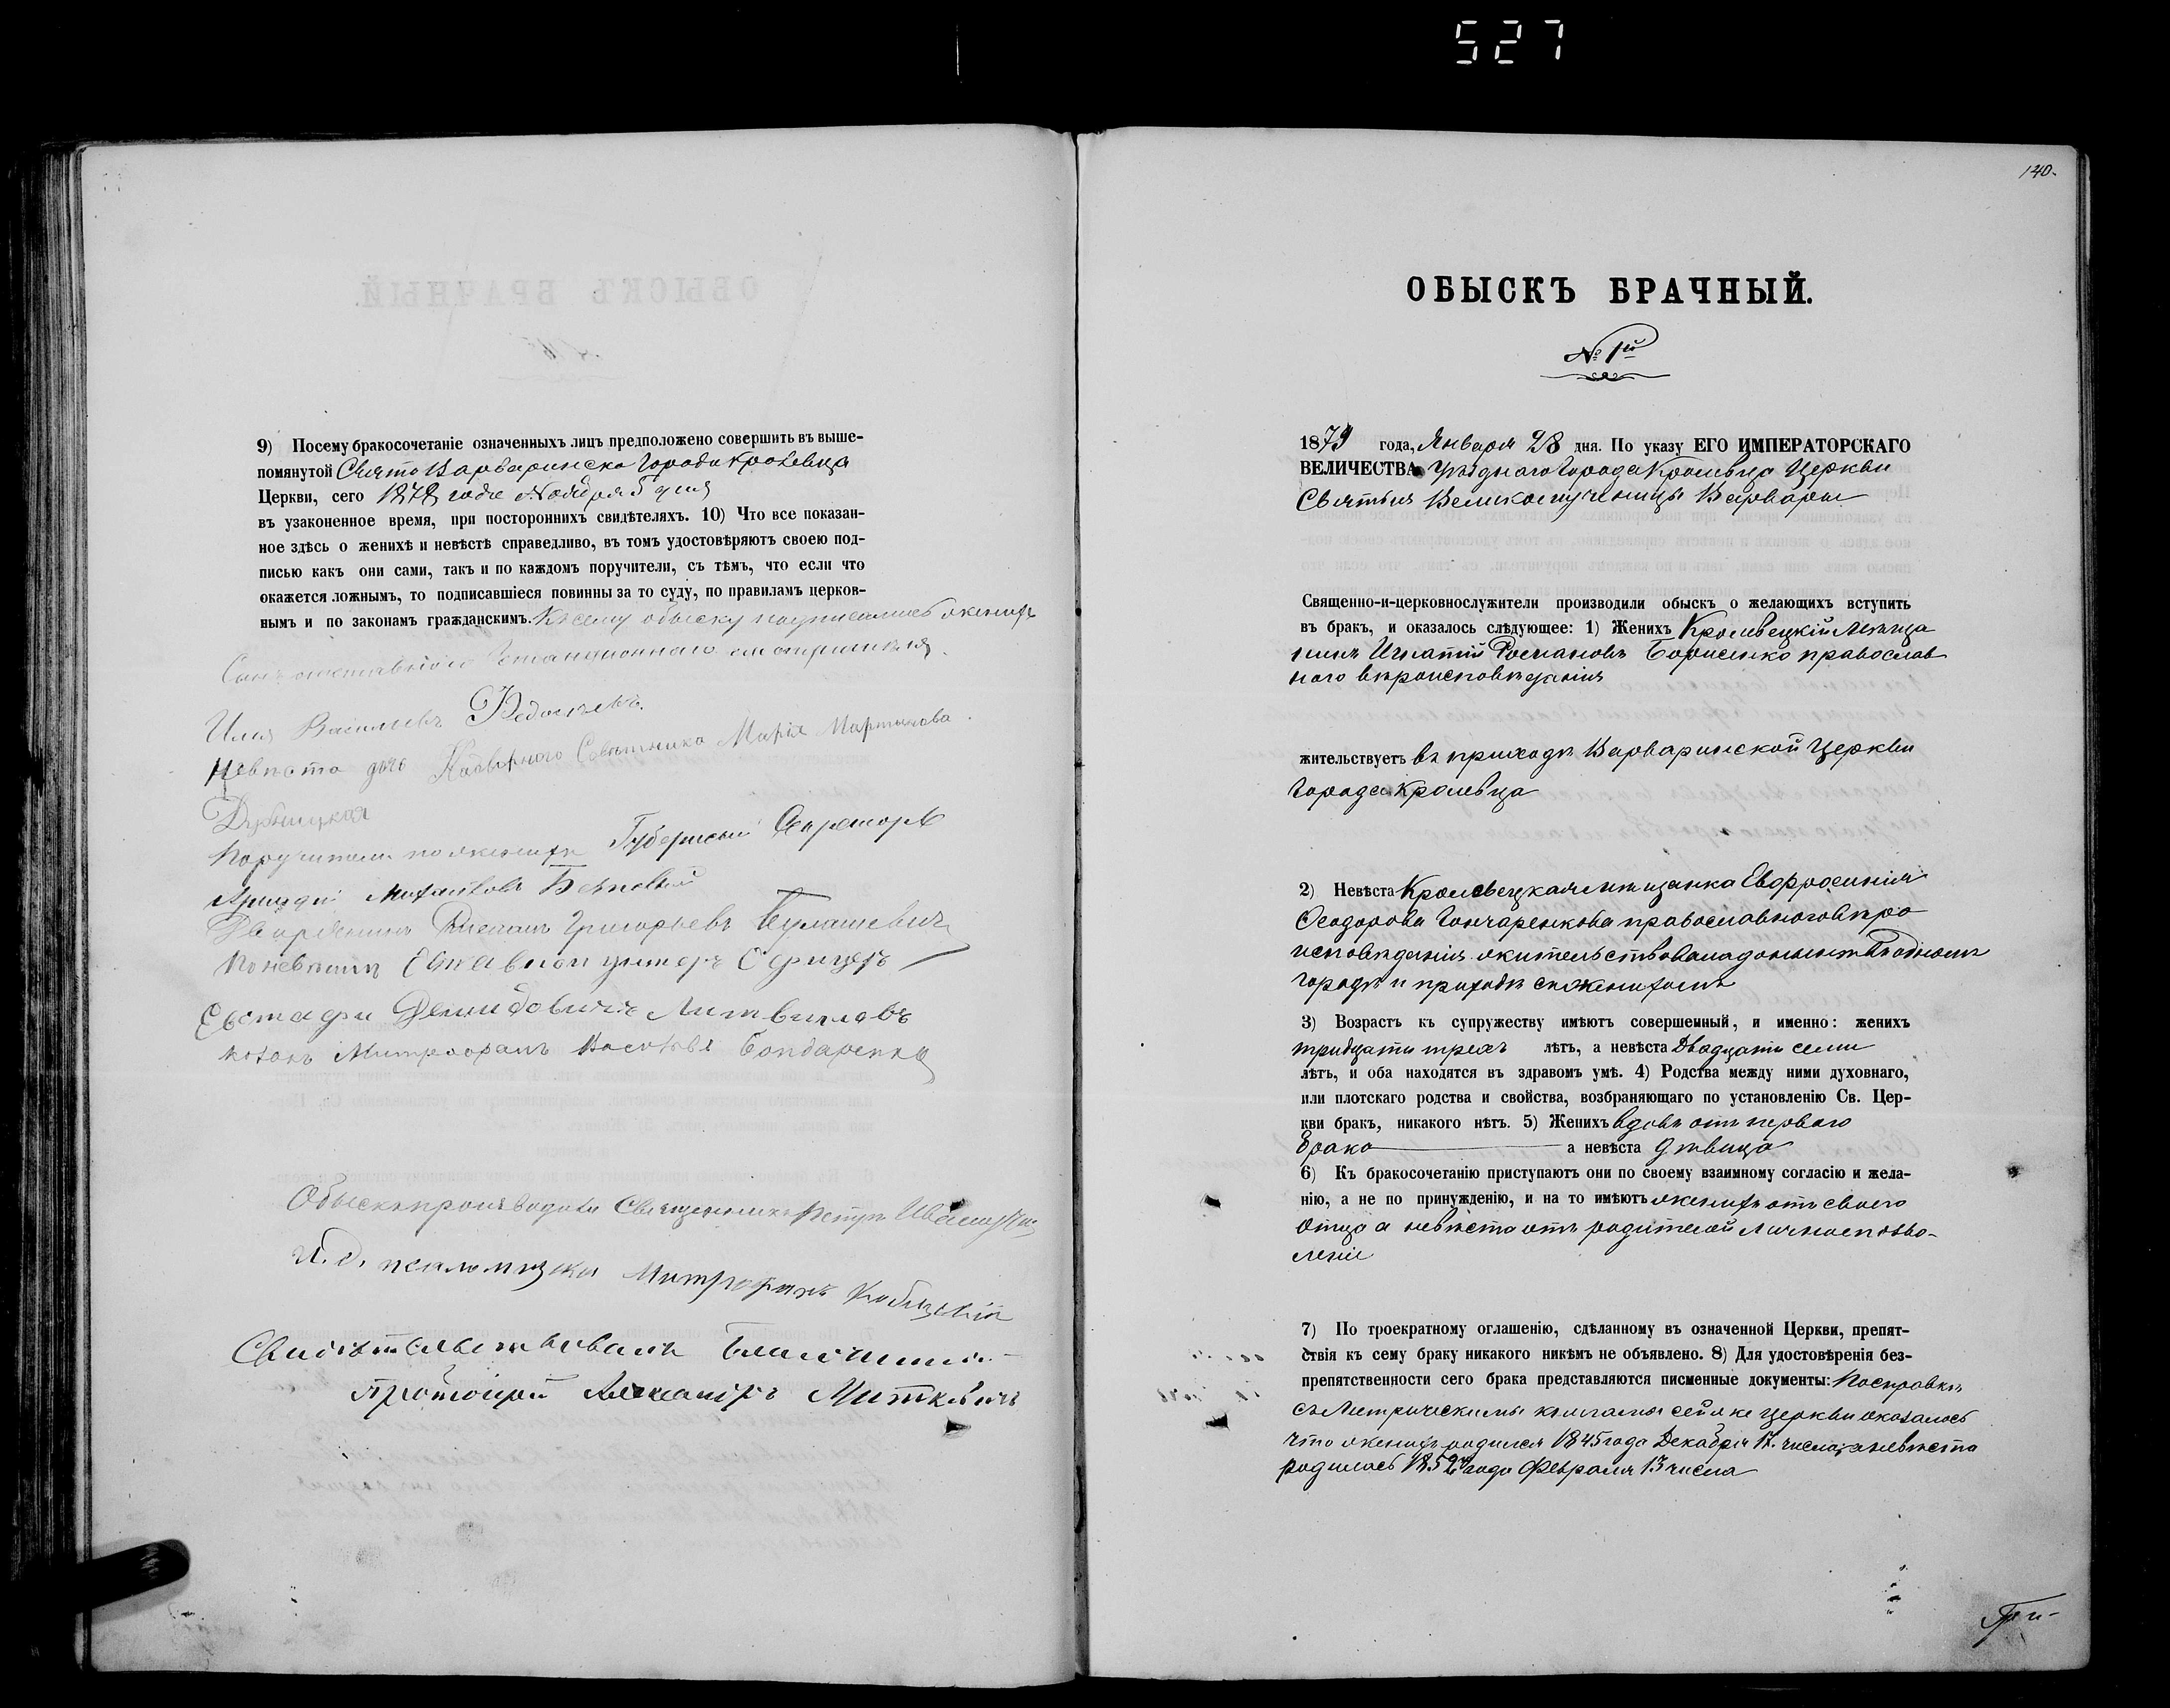 527
9) Посему бракосочетаніе означенныхъ лицъ предположено совершить въ выше-
помянутой Свято Варваринско города Кролевца
Церкви, сего 1878 года Ноября 5 дня
въ узаконенное время, при постороннихъ свидѣтеляхъ. 10) Что все показан-
ное здѣсь о женихѣ и невѣстѣ справедливо, въ томъ удостовѣряютъ своею под-
писью какъ они сами, такъ и по каждомъ поручители, съ тѣмъ, что если что
окажется ложнымъ, то подписавшіеся повинны за то суду, по правиламъ церков-
нымъ и по законамъ гражданскимъ. Къ сему обыску подписались женихъ
Сынъ отставного Станціоннаго смотрителя
Илія Васильевъ
Невѣста дочь Совѣтника Марія Мартынова
Поручители по женихѣ Губернскій Секретарь
Михайловъ
Дворянинъ Григорьевъ
По невѣстѣ унтеръ Офицеръ
Евстафи Демидовичъ Литвиновъ
козакъ Митрофанъ Бондаренко
Обыскъ производили Священникъ Петръ
И. д. псаломщика Митрофанъ
Свидѣтельствовалъ Благочинный
Протоіерей Александръ Миткевичъ
140.
ОБЫСКЪ БРАЧНЫЙ.
№ 1й
1879 года, Января 28 дня. По указу ЕГО ИМПЕРАТОРСКАГО
ВЕЛИЧЕСТВА Уѣзднаго города Кролевца Церкви
Святыя Великомученицы Варвары
Священно-и-церковнослужители производили обыскъ о желающихъ вступить
въ бракъ, и оказалось слѣдующее: 1) Женихъ Кролевецкій мѣща
нинъ Игнатій Романовъ Борисенко православ
ного вѣроисповѣданія
жительствуетъ въ приходѣ Варваринской Церкви
города Кролевца
2) Невѣста Кролевецкая мѣщанка Евфросинія
Феодорова Гончаренкова православного вѣро
исповѣданія жительствовала донынѣ въ одномъ
городѣ и приходѣ съ женихомъ
3) Возрастъ къ супружеству имѣютъ совершенный, и именно: женихъ
тридцати трехъ лѣтъ, а невѣста Двадцати семи
лѣтъ, и оба находятся въ здравомъ умѣ. 4) Родства между ними духовнаго,
или плотскаго родства и свойства, возбраняющаго по установленію Св. Цер-
кви бракъ, никакого нѣтъ. 5) Женихъ вдовъ отъ первого
брака а невѣста дѣвица
6) Къ бракосочетанію приступаютъ они по своему взаимному согласію и жела-
нію, а не по принужденію, и на то имѣютъ женихъ отъ своего
отца а невѣста отъ родителей личное позво-
леніе
7) По троекратному оглашенію, сдѣланному въ означенной Церкви, препят-
ствія къ сему браку никакого никѣмъ не объявлено. 8) Для удостовѣренія без-
препятственности сего брака представляются писменные документы: По справкѣ
съ Метрическими книгами сей же церкви оказалось
что женихъ родился 1845 года Декабря 17. числа, а невѣста
родилась 1852 года Февраля 13 числа
При-